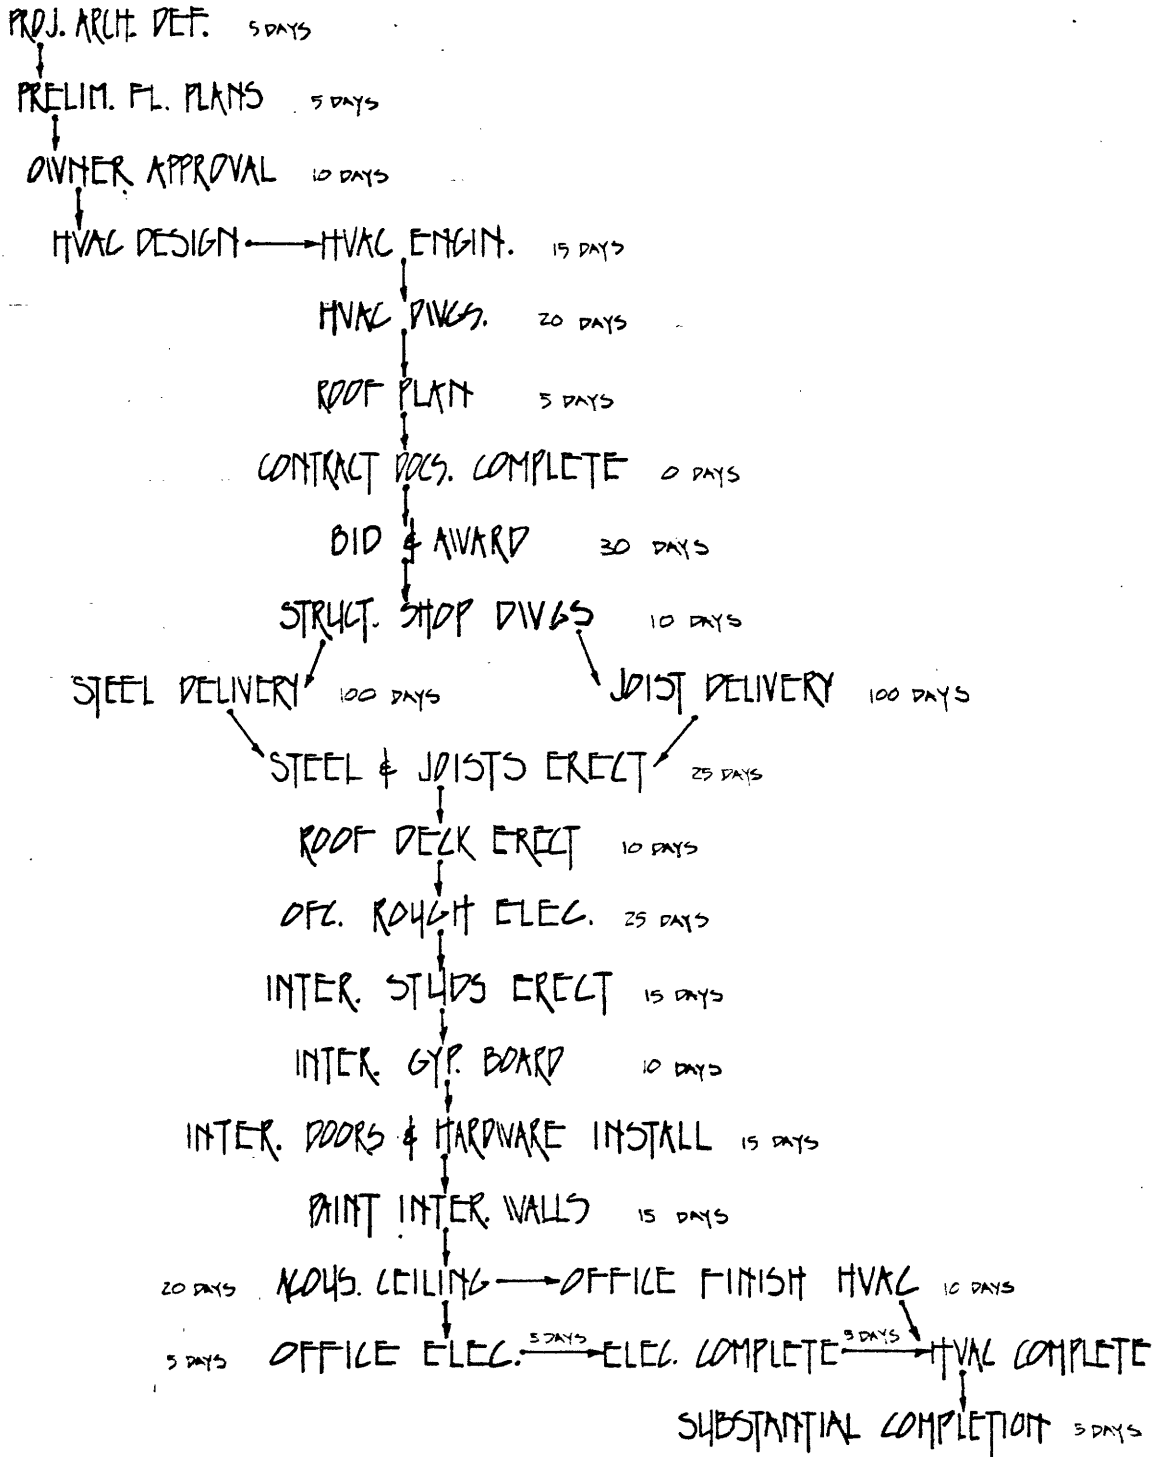 PROJ. ARCH. DEF. 5 DAYS
PRELIM. FL. PLANS 5 DAYS
OWNER APPROVAL 10 DAYS
HVAC DESIGN HVAC ENGIN. 15 DAYS
HVAC DWGS. 20 DAYS
ROOF PLAN 5 DAYS
CONTRACT DOCS. COMPLETE 0 DAYS
BID & AWARD 30 DAYS
STRUCT. SHOP DWGS 10 DAYS
STEEL DELIVERY 100 DAYS JOIST DELIVERY 100 DAYS
STEEL & JOISTS ERECT 25 DAYS
ROOF DECK ERECT 10 DAYS
OFC. ROUGH ELEC. 25 DAYS
INTER. STUDS ERECT 15 DAYS
INTER. GYP. BOARD 10 DAYS
INTER. DOORS & HARDWARE INSTALL 15 DAYS
PAINT INTER. WALLS 15 DAYS
20 DAYS ACOUS. CEILING OFFICE FINISH HVAC 10 DAYS
5 DAYS OFFICE ELEC. 5 DAYS ELEC. COMPLETE 5 DAYS HVAC COMPLETE
SUBSTANTIAL COMPLETION 5 DAYS